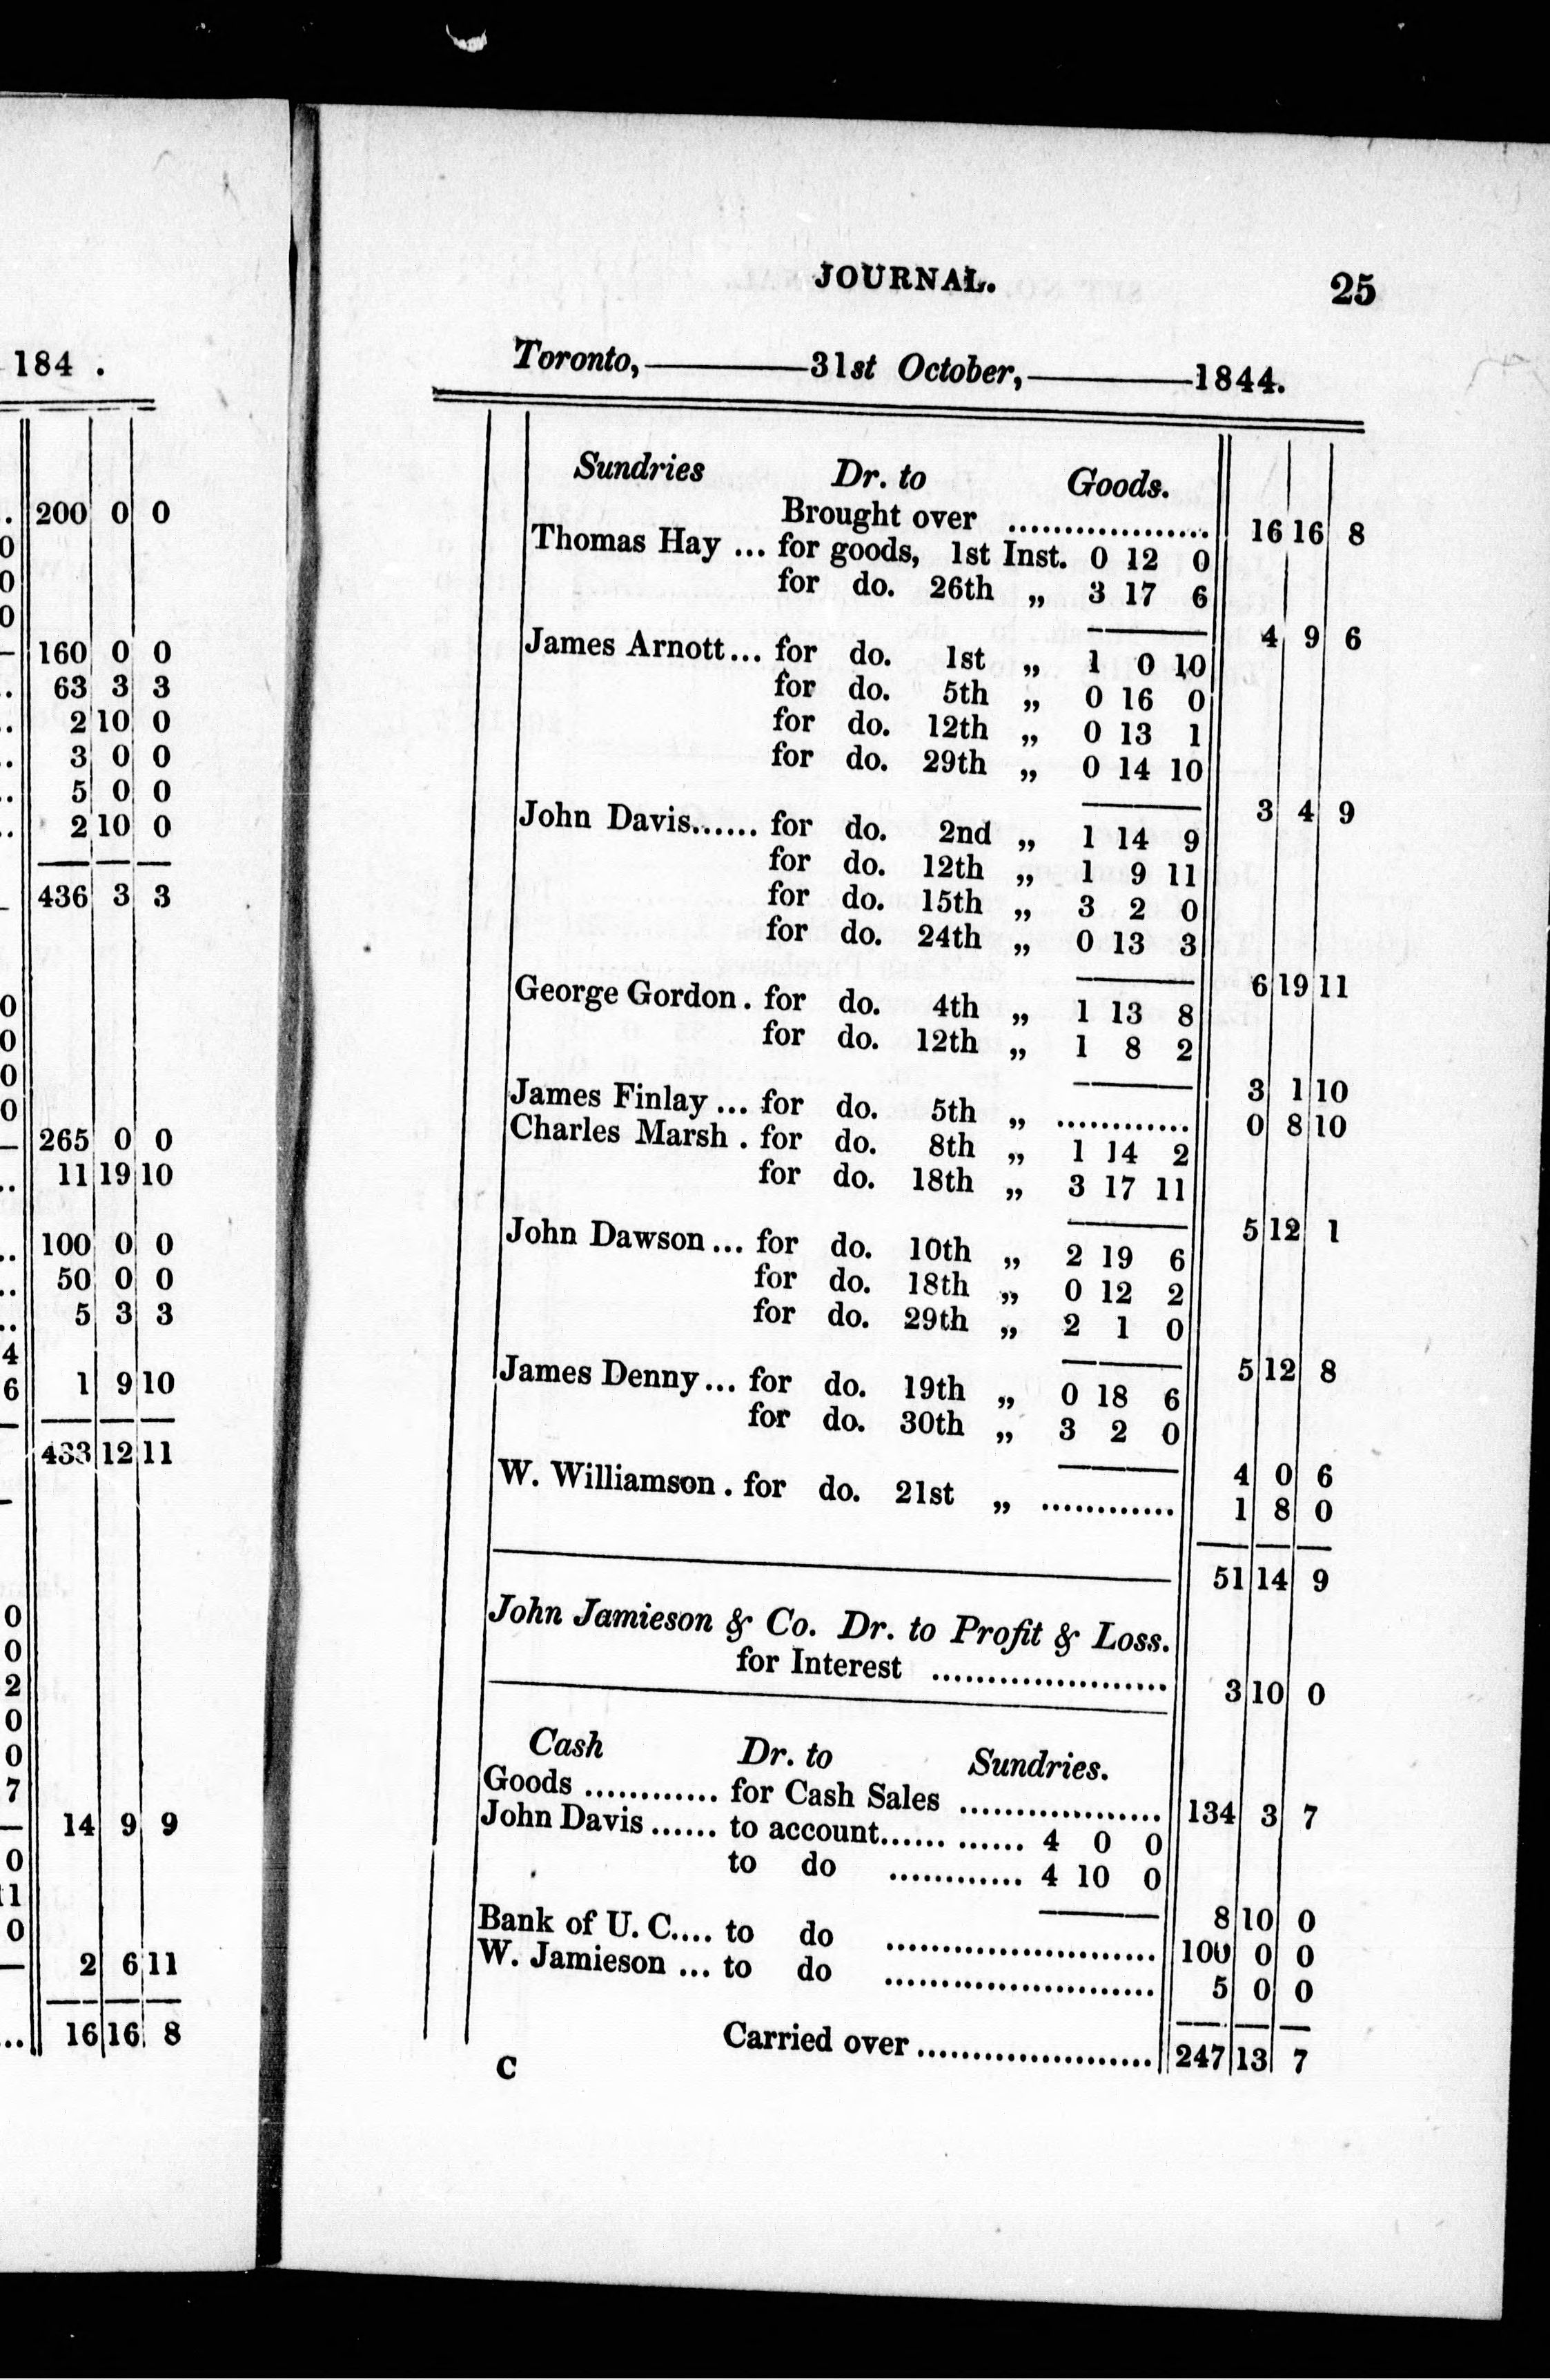 184 .
200 0 0
0
0
0
160 0 0
63 3 3
2 10 0
3 0 0
5 0 0
2 10 0
436 3 3
0
0
0
0
265 0 0
11 19 10
100 0 0
50 0 0
5 3 3
4
6 1 9 10
433 12 11
0
0
2
0
0
7
14 9 9
0
11
0
2 6 11
16 16 8
JOURNAL. 25
Toronto,————31st October,————1844.
Sundries Dr. to Goods.
Brought over .................. 16 16 8
Thomas Hay ... for goods, 1st Inst. 0 12 0
for do. 26th „ 3 17 6
4 9 6
James Arnott... for do. 1st „ 1 0 10
for do. 5th „ 0 16 0
for do. 12th „ 0 13 1
for do. 29th „ 0 14 10
3 4 9
John Davis...... for do. 2nd „ 1 14 9
for do. 12th „ 1 9 11
for do. 15th „ 3 2 0
for do. 24th „ 0 13 3
6 19 11
George Gordon . for do. 4th „ 1 13 8
for do. 12th „ 1 8 2
3 1 10
James Finlay ... for do. 5th „ ............ 0 8 10
Charles Marsh . for do. 8th „ 1 14 2
for do. 18th „ 3 17 11
5 12 1
John Dawson ... for do. 10th „ 2 19 6
for do. 18th „ 0 12 2
for do. 29th „ 2 1 0
5 12 8
James Denny ... for do. 19th „ 0 18 6
for do. 30th „ 3 2 0
4 0 6
W. Williamson . for do. 21st „ ............ 1 8 0
51 14 9
John Jamieson & Co. Dr. to Profit & Loss.
for Interest ..................... 3 10 0
Cash Dr. to Sundries.
Goods ............ for Cash Sales .................. 134 3 7
John Davis ...... to account...... ...... 4 0 0
to do ............ 4 10 0
8 10 0
Bank of U. C.... to do ........................ 100 0 0
W. Jamieson ... to do ........................ 5 0 0
Carried over ..................... 247 13 7
C